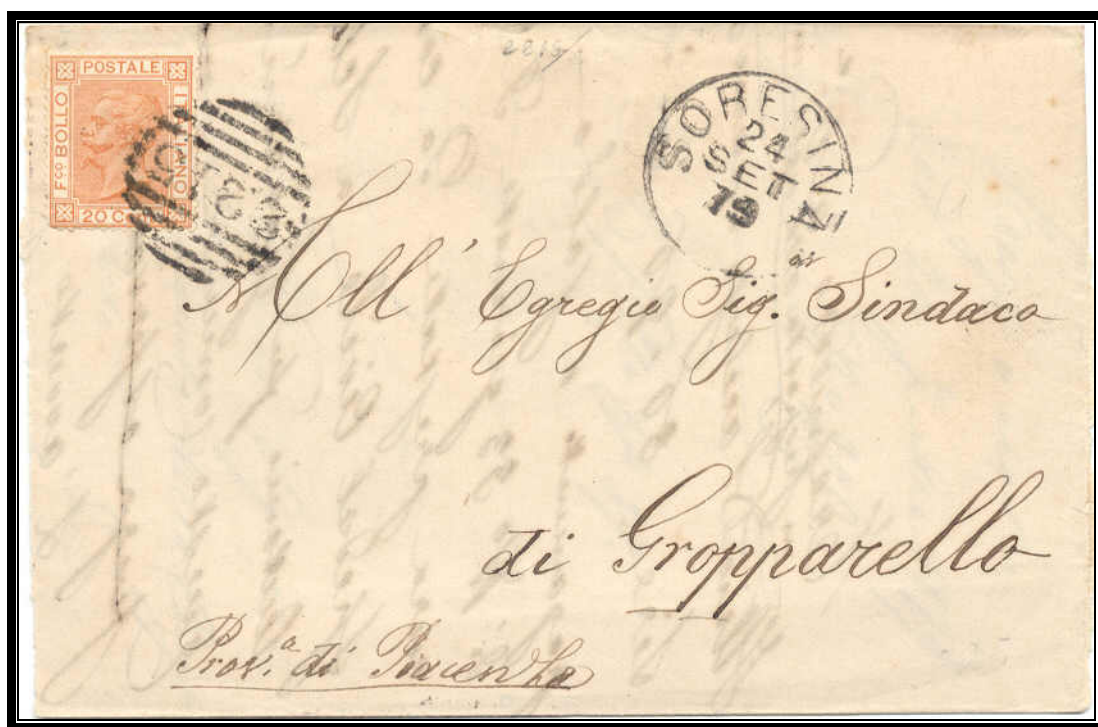 2215
POSTALE
F.CO BOLLO
20 C
ONI
LI
2215
SORESINA
24
SET
79
All' Egregio Sig. Sindaco
di Gropparello
Prov.a di Piacenza